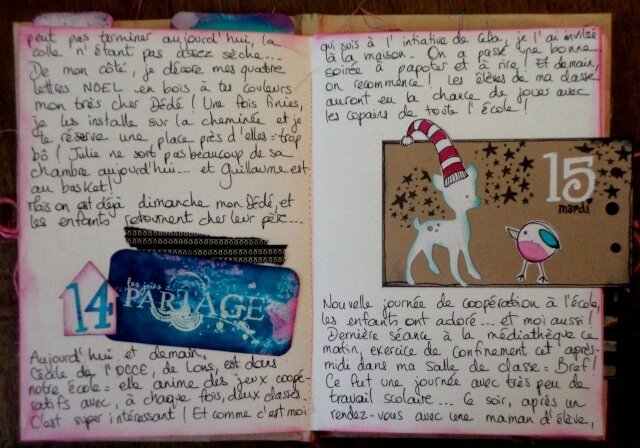 peut pas terminer aujourd'hui, la
colle n'étant pas assez sèche...
De mon côté, je décore mes quatre
lettres NOEL en bois à tes couleurs
mon très cher Dédé! Une fois finies,
je les installe sur la cheminée et je
te réserve une place près d'elles = trop
bô! Julie ne sort pas beaucoup de sa
chambre aujourd'hui... et Guillaume est
au basket!
Mais on est déjà dimanche mon Dédé, et
les enfants retournent cher leur père...
14
les joies du
PARTAGE
Aujourd'hui et demain,
Cécile de l'OCCE, de Lons, est dans
notre école = elle anime des jeux coopé-
ratifs avec, à chaque fois, deux classes.
C'est super intéressant! Et comme c'est moi
qui suis à l'intiative de cela, je l'ai invitée
à la maison. On a passé une bonne
soirée à papoter et à rire! Et demain,
on recommence! Les élèves de ma classe
auront eu la chance de jouer avec
les copains de toute l'école!
15
mardi
Nouvelle journée de coopération à l'école,
les enfants ont adoré... et moi aussi!
Dernière séance à la médiathèque ce
matin, exercice de confinement cet après-
midi dans ma salle de classe = Bref!
Ce fut une journée avec très peu de
travail scolaire... Ce soir, après un
rendez-vous avec une maman d'élève,